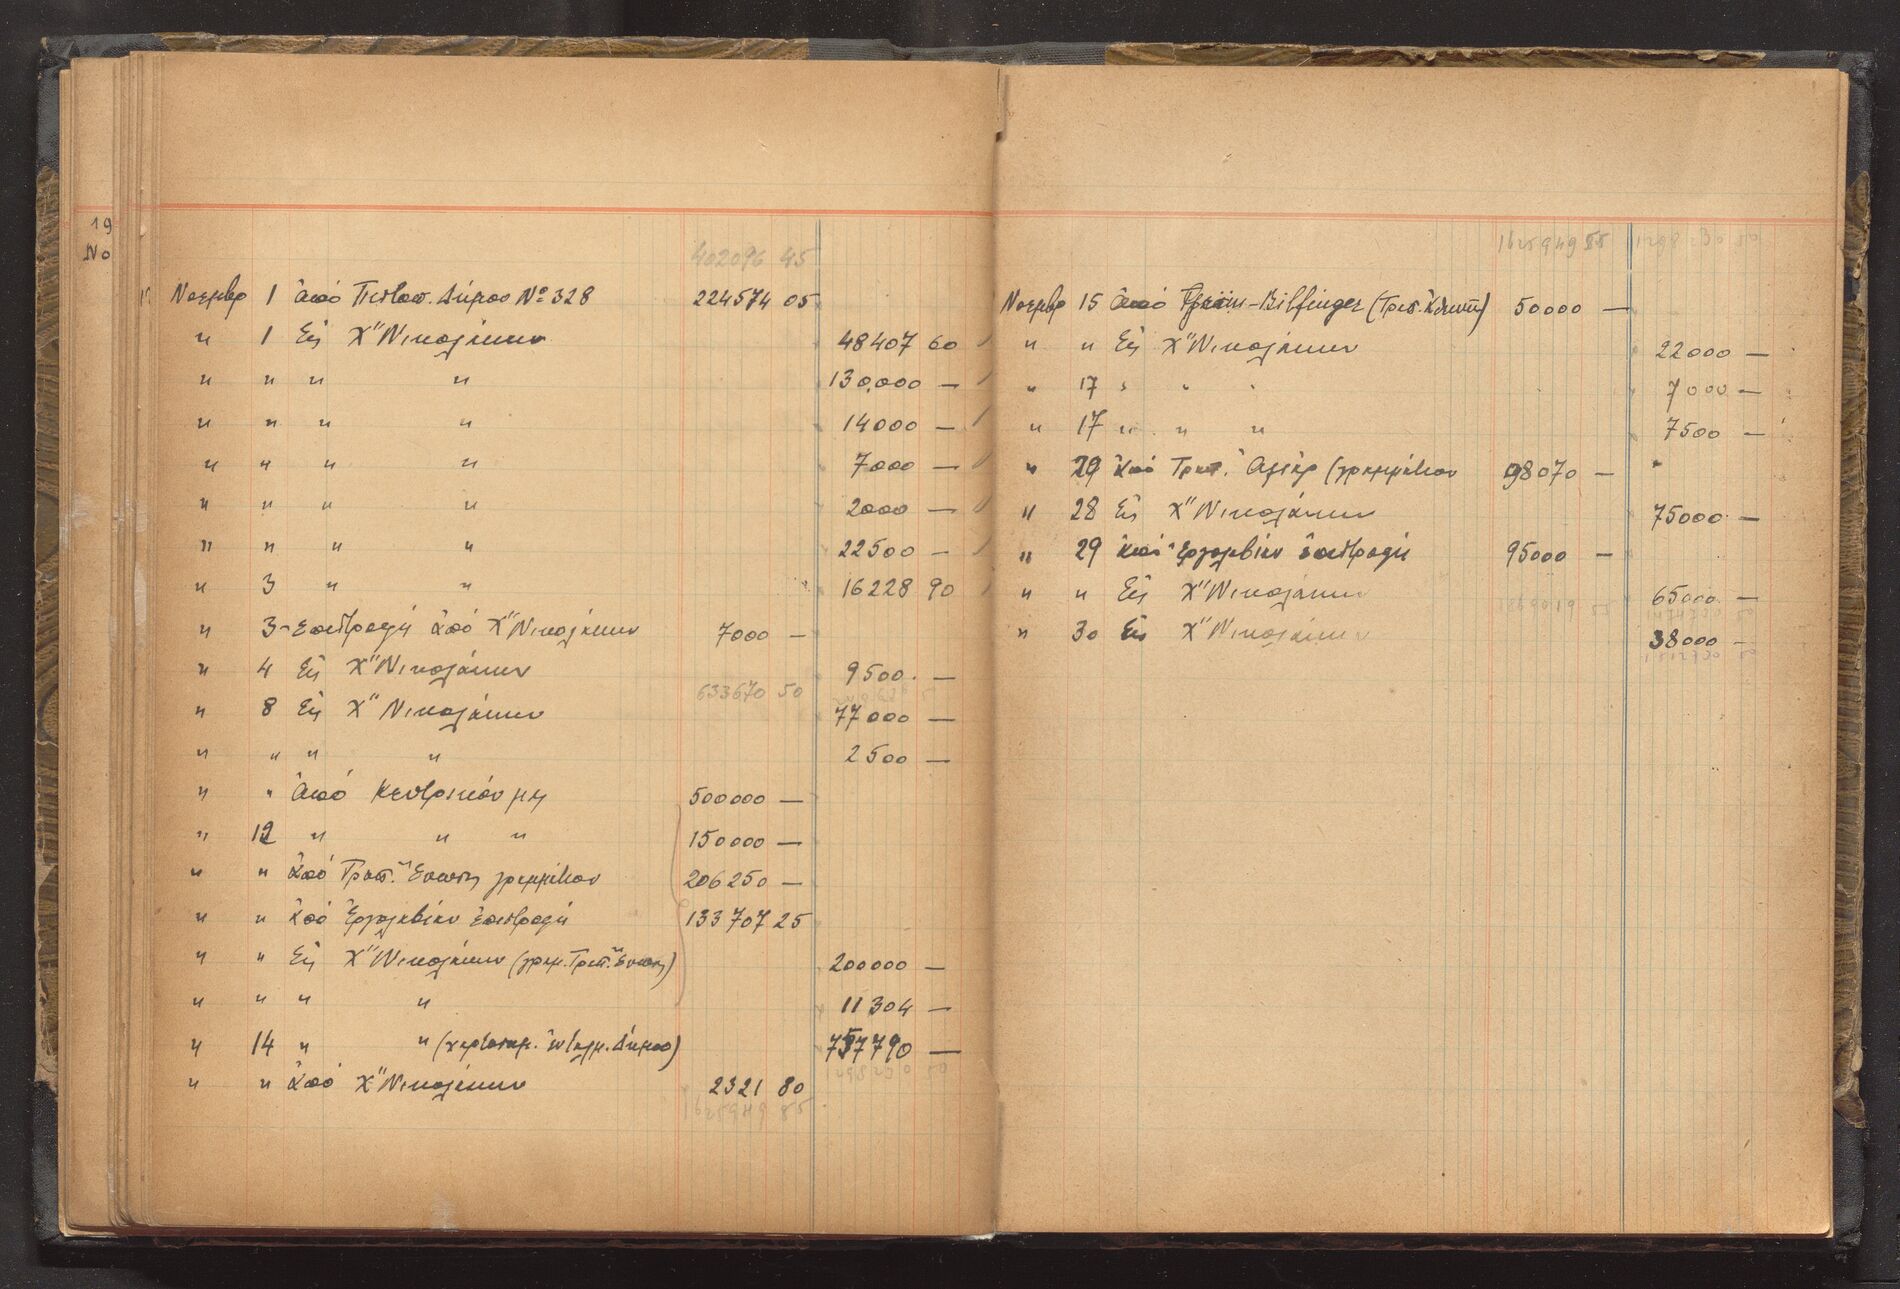 19
Νο
402096 45
Νοεμβρ 1 Ἀπό Πιστοπ. Δήμου Νº 328 224574 05
" 1 Εἰς Χ"Νικολάκην 48407 60
" " " " 130,000 —
" " " " 14000 —
" " " " 7000 —
" " " " 2000 —
" " " " 22500 —
" 3 " " 16228 90
" 3 Ἐπιστροφή ἀπό Χ"Νικολάκην 7000 —
" 4 Εἰς Χ"Νικολάκην 9500 —
633670 50
" 8 Εἰς Χ"Νικολάκην 77000 —
" " " " 2500 —
" " Ἀπό Κεντρικόν μας 500000 —
" 12 " " " 150000 —
" " Ἀπό Τραπ. Ἑνώσεως γραμμάτιον 206250 —
" " Ἀπό Ἐργολαβίαν ἐπιστροφή 133707 25
" " Εἰς Χ"Νικολάκην (γραμ. Τραπ. Ἑνώσεως) 200000 —
" " " " 11304 —
" 14 " " Δήμου) 757790 —
1298230 50
" " Ἀπό Χ"Νικολάκην 2321 80
1625949 85
1625949 85 1298230 50
Νοεμβρ 15 Ἀπό Grün-Bilfinger (Τραπ. Ἀθηνῶν) 50000 —
" " Εἰς Χ"Νικολάκην 22000 —
" 17 " " " 7000 —
" 17 " " " 7500 —
" 29 Ἀπό Τραπ. γραμμάτιον 98070 —
" 28 Εἰς Χ"Νικολάκην 75000 —
" 29 Ἀπό Ἐργολαβίαν ἐπιστροφή 95000 —
" " Εἰς Χ"Νικολάκην 65000 —
" 30 Εἰς Χ"Νικολάκην 38000 —